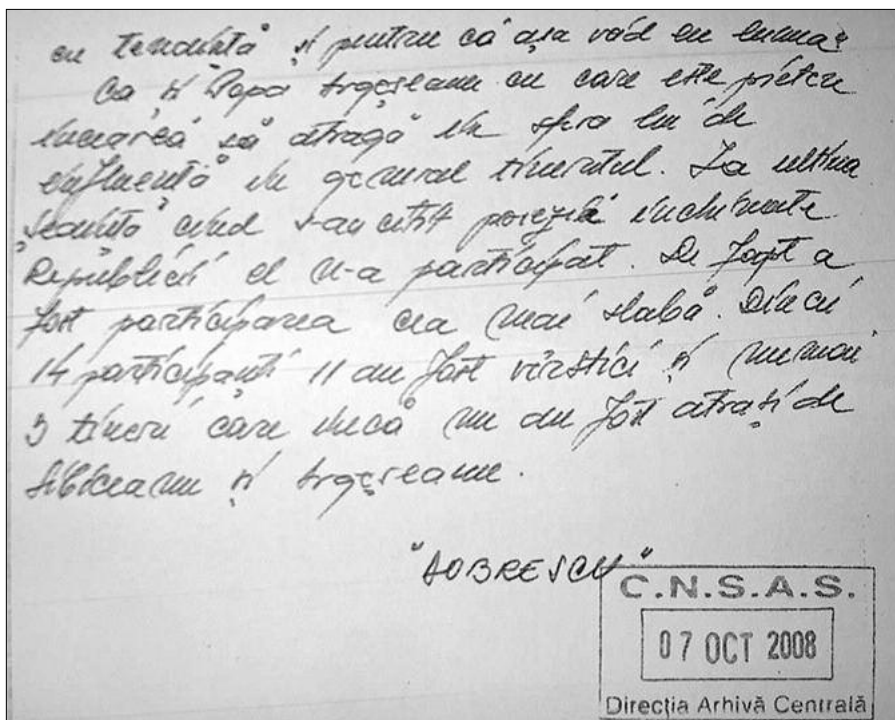 cu tendință și pentru că așa văd eu lumea"
Ca și Popa Argeșeanu cu care este prieten
încearcă să atragă în sfera lui de
influență în general tineretul. La ultima
ședință cînd s-au citit poezii închinate
Republicii el n-a participat. De fapt a
fost participarea cea mai slabă. Din cei
14 participanți 11 au fost vîrstici și numai
3 tineri care încă nu au fost atrași de
Sibiceanu și Argeșeanu.
"DOBRESCU"
C.N.S.A.S.
07 OCT 2008
Direcția Arhivă Centrală